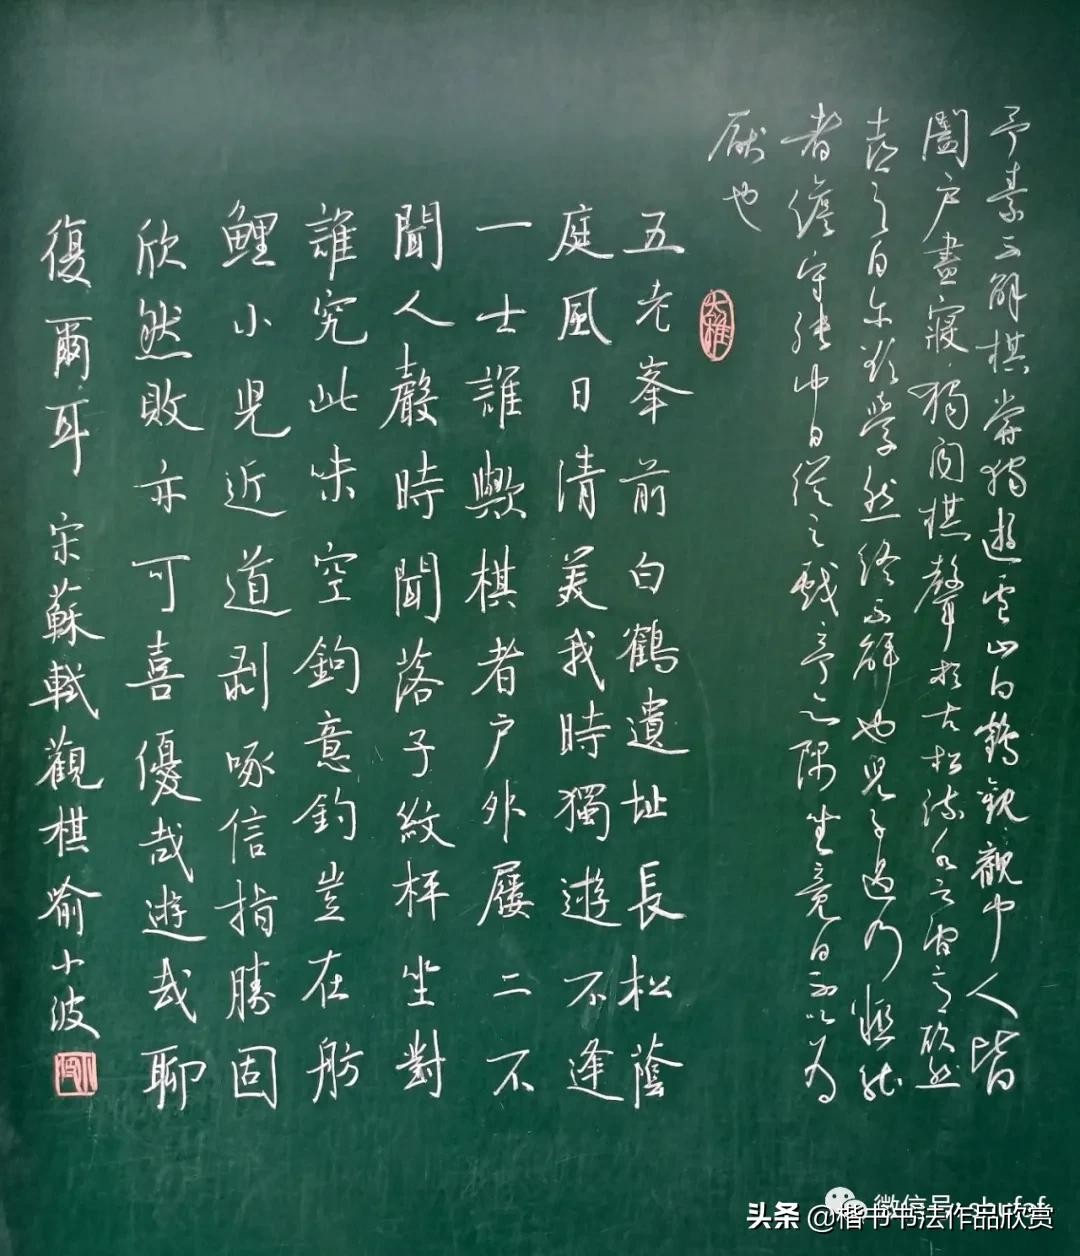 予素不解棋嘗獨遊廬山白鶴觀觀中人皆
闔戶晝寢獨聞棋聲於古松流水之間意欣然
喜之自爾欲學然終不解也兒子過乃粗能
者儋守張中日從之戲予亦隅坐竟日不以為
厭也
五老峯前白鶴遺址長松蔭
庭風日清美我時獨遊不逢
一士誰歟棋者戶外屨二不
聞人聲時聞落子紋枰坐對
誰究此味空鉤意釣豈在魴
鯉小兒近道剥啄信指勝固
欣然敗亦可喜優哉遊哉聊
復爾耳 宋蘇軾觀棋喻小波
微信号: shufaf
头条 @楷书书法作品欣赏